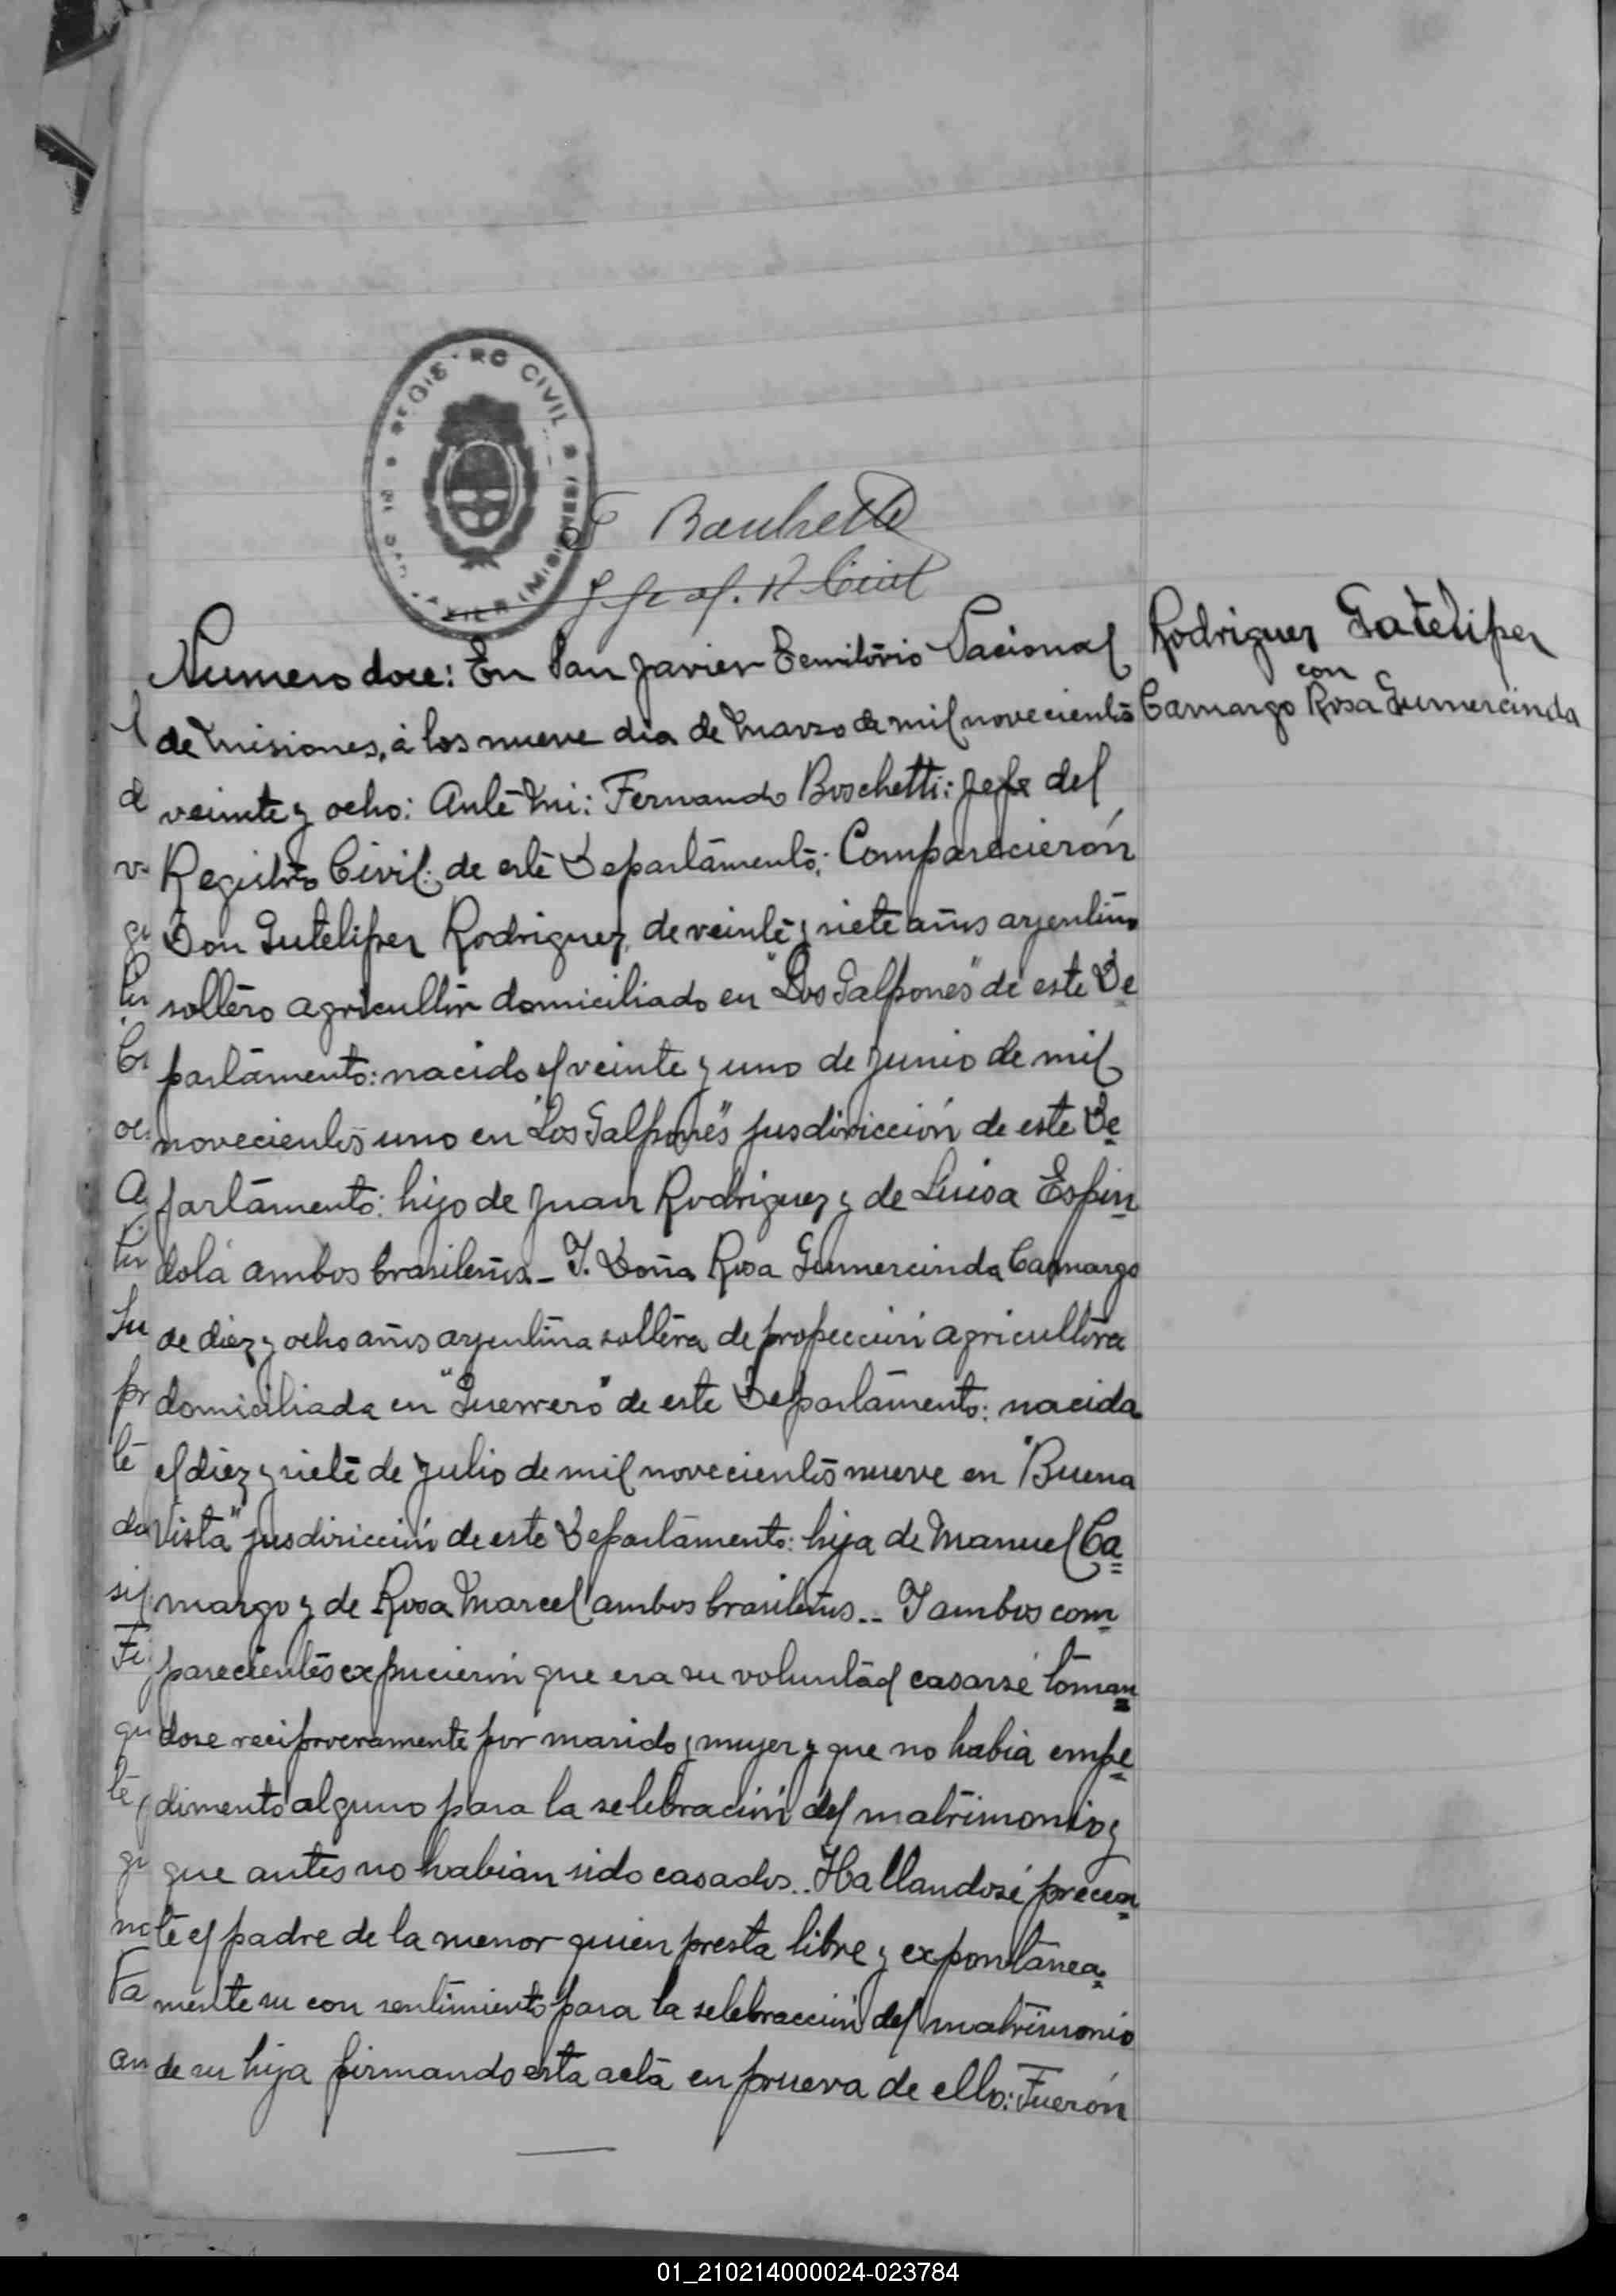 REGISTRO CIVIL
F Boschetti
Jefe del R. Civil
Rodriguez Gateliper
con
Camargo Rosa Gumercinda
Numero doce: En San Javier Territorio Nacional
de Misiones, á los nueve dia de Marzo de mil novecientos
veinte y ocho: Ante Mi: Fernando Boschetti: Jefe del
Registro Civil: de este Departamento; Comparecierón
Don Guteliper Rodriguez, de veinte y siete años argentino
soltero agricultor domiciliado en "Los Galpones" de este De
partamento: nacido el veinte y uno de Junio de mil
novecientos uno en "Los Galpones" jusdiricción de este De
partamento: hijo de Juan Rodriguez y de Luisa Espin
dola ambos brasileños._ Y. Doña Rosa Gumercinda Camargo
de diez y ocho años argentina soltera de profección agricultora
domiciliada en "Guerrero" de este Departamento: nacida
el diez y siete de Julio de mil novecientos nueve en "Buena
Vista" jusdiricción de este Departamento: hija de Manuel Ca
margo y de Rosa Marcel ambos brasileños.. Y ambos com
parecientes expucierón que era su voluntad casarsé toman
dose reciproveramente por marido y mujer y que no habia empe
dimento alguno para la selebración del matrimonio y
que antes no habian sido casados.. Hallandosé precen
te el padre de la menor quien presta libre y expontanea
mente su con sentimiento para la selebracción del matrimonio
de su hija firmando esta acta en prueva de ello: Fuerón
01_210214000024-023784